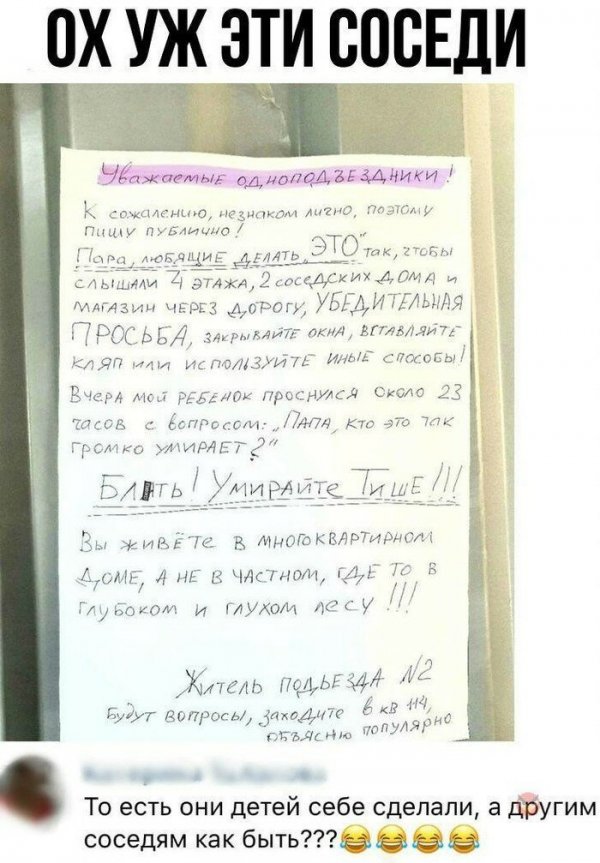 ОХ УЖ ЭТИ СОСЕДИ
Уважаемые одноподъездники!
К сожалению, незнаком лично, поэтому
пишу публично!
Пара, любящие делать "ЭТО" так, чтобы
слышали 4 этажа, 2 соседских дома и
магазин через дорогу, УБЕДИТЕЛЬНАЯ
ПРОСЬБА, закрывайте окна, вставляйте
кляп или используйте иные способы!
Вчера мой ребенок проснулся около 23
часов с вопросом: "Папа, кто это так
громко умирает?"
Умирайте Тише!!!
Вы живёте в многоквартирном
доме, а не в частном, где то в
глубоком и глухом лесу!!!
Житель подъезда №2
Будут вопросы, заходите в кв 114,
объясню популярно
То есть они детей себе сделали, а другим
соседям как быть???😂😂😂😂